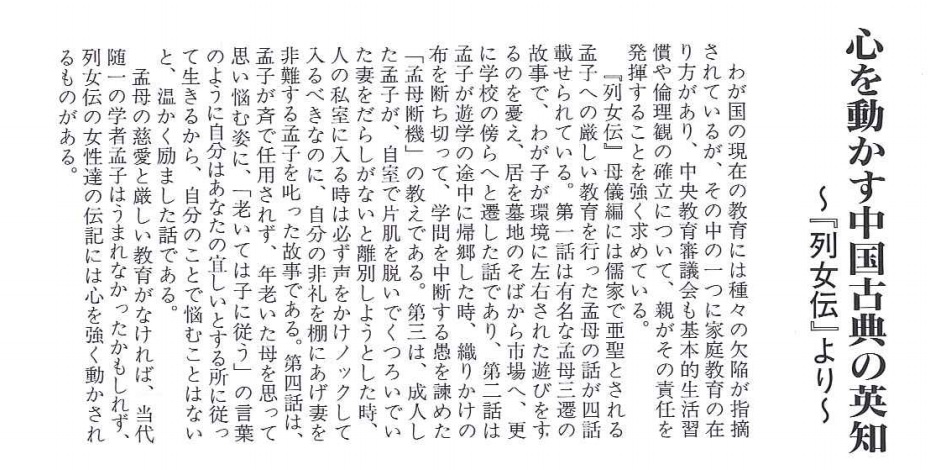 心を動かす中国古典の英知
～『列女伝』より～
わが国の現在の教育には種々の欠陥が指摘
されているが、その中の一つに家庭教育の在
り方があり、中央教育審議会も基本的生活習
慣や倫理観の確立について、親がその責任を
発揮することを強く求めている。
『列女伝』母儀編には儒家で亜聖とされる
孟子への厳しい教育を行った孟母の話が四話
載せられている。第一話は有名な孟母三遷の
故事で、わが子が環境に左右された遊びをす
るのを憂え、居を墓地のそばから市場へ、更
に学校の傍らへと遷した話であり、第二話は
孟子が遊学の途中に帰郷した時、織りかけの
布を断ち切って、学問を中断する愚を諫めた
「孟母断機」の教えである。第三は、成人し
た孟子が、自室で片肌を脱いでくつろいでい
た妻をだらしがないと離別しようとした時、
人の私室に入る時は必ず声をかけノックして
入るべきなのに、自分の非礼を棚にあげ妻を
非難する孟子を叱った故事である。第四話は、
孟子が斉で任用されず、年老いた母を思って
思い悩む姿に、「老いては子に従う」の言葉
のように自分はあなたの宜しいとする所に従っ
て生きるから、自分のことで悩むことはない
と、温かく励ました話である。
孟母の慈愛と厳しい教育がなければ、当代
随一の学者孟子はうまれなかったかもしれず、
列女伝の女性達の伝記には心を強く動かされ
るものがある。